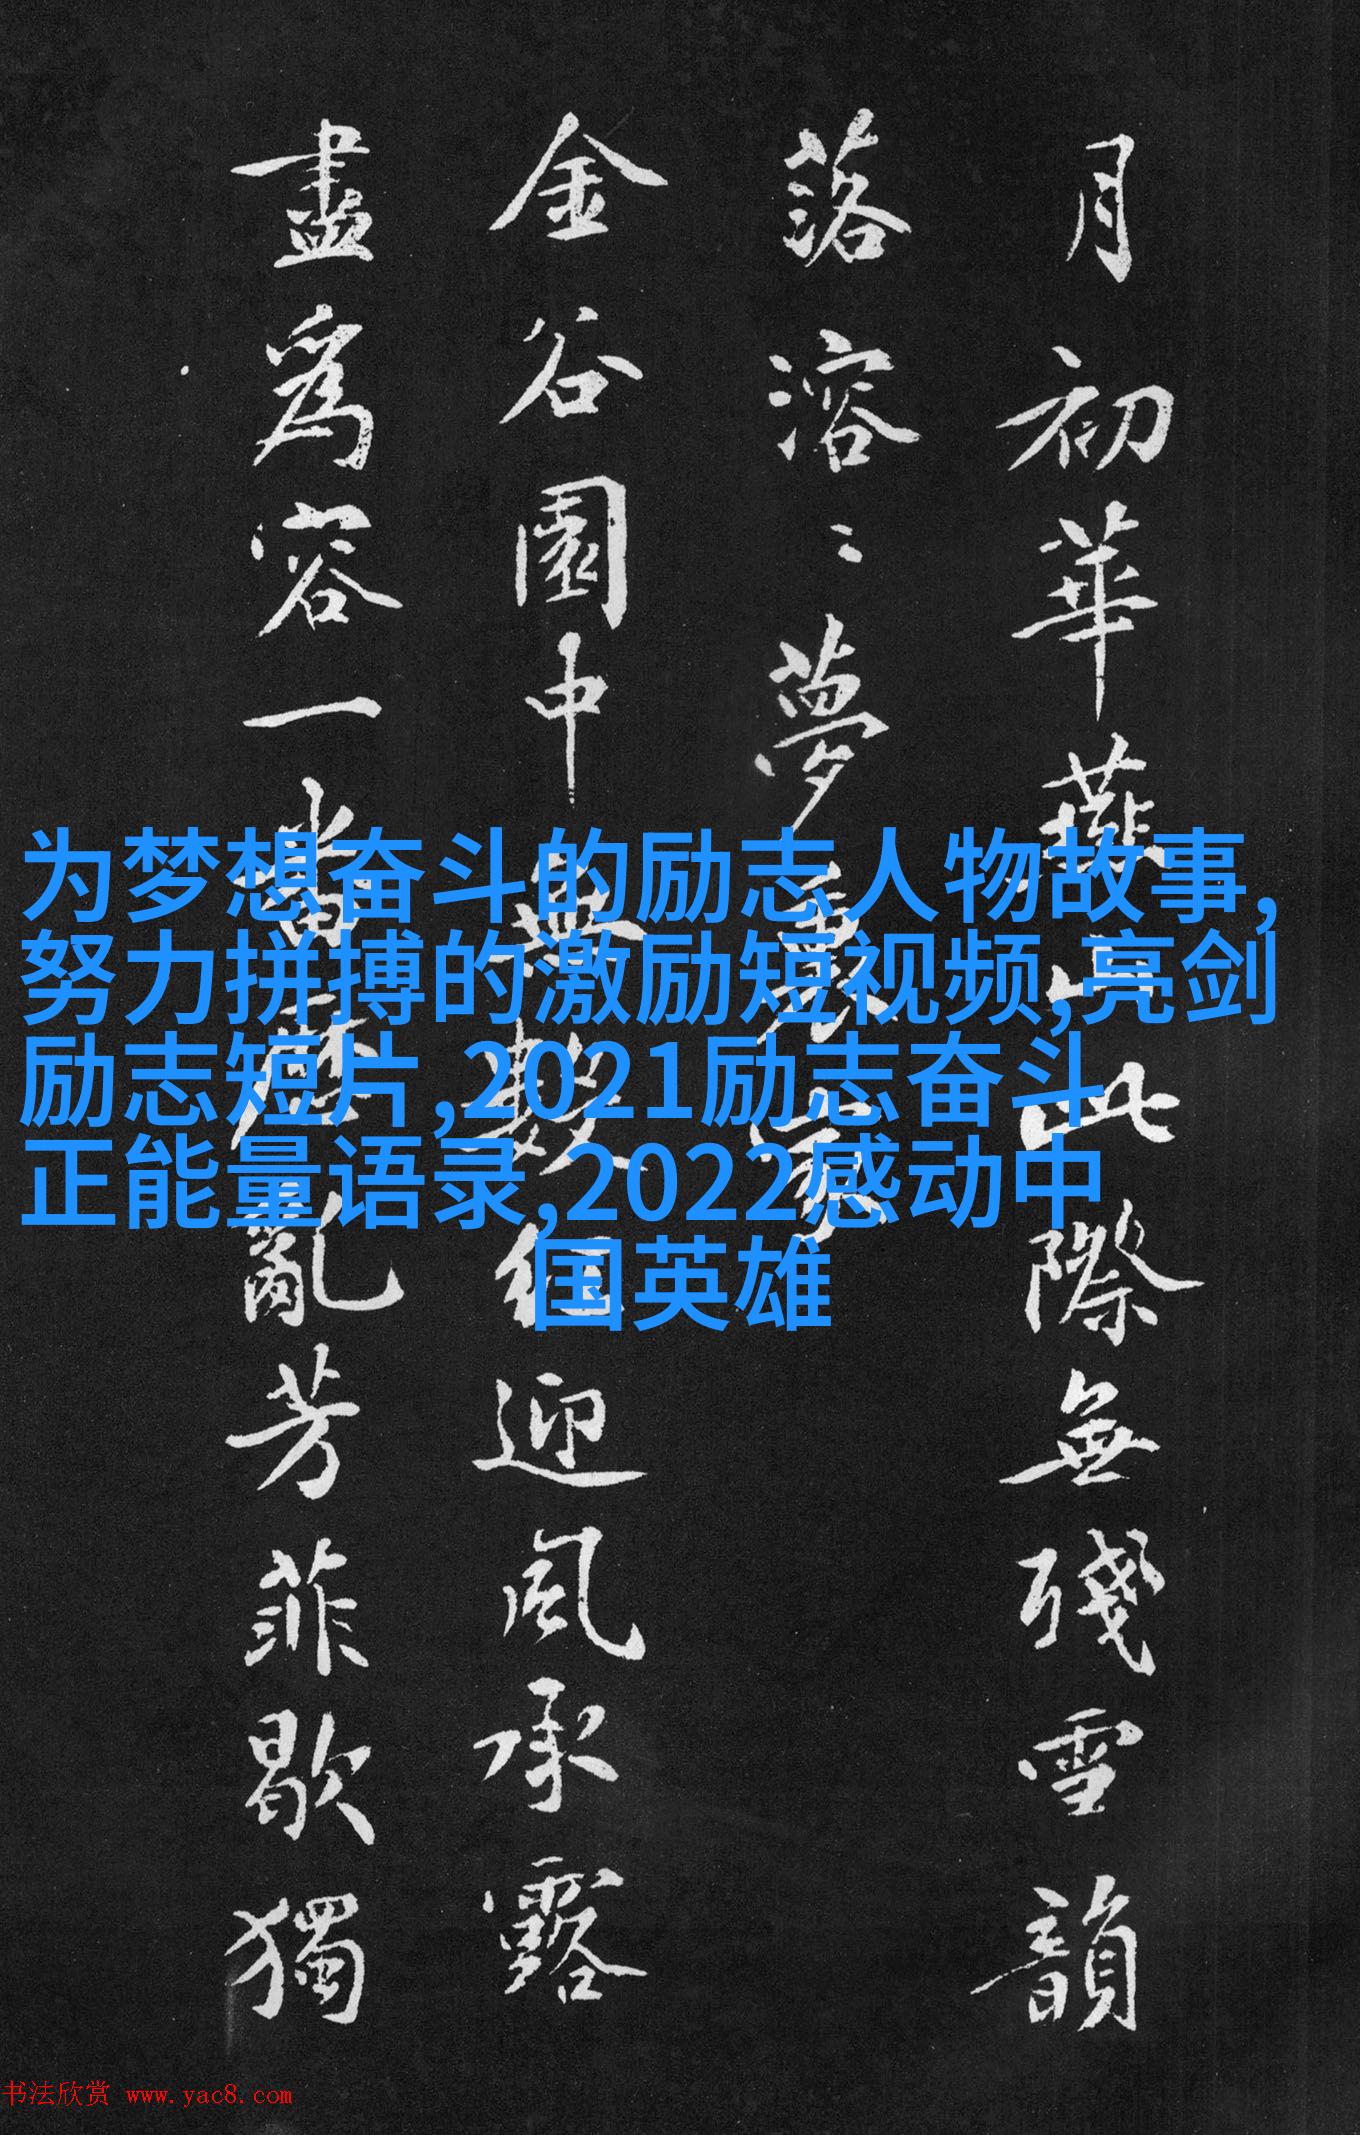 月初華燕山此際無殘雪韻
落溶〻夢裏家
金谷園中無數紅迎風承露
盡爲容一番亂芳菲歇獨
为梦想奋斗的励志人物故事,
努力拼搏的激励短视频,亮剑
励志短片,2021励志奋斗
正能量语录,2022感动中
国英雄
书法欣赏 www.yac8.com